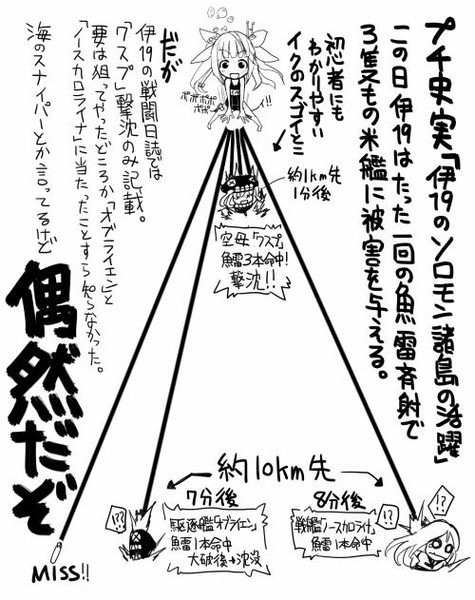 プチ史実「伊19のソロモン諸島の活躍」
この日伊19はたった一回の魚雷斉射で
3隻もの米艦に被害を与える。
初心者にも
わかりやすい
イクのスゴイとこ
ポポポポポ
ポポ
!!
約1km先
1分後
空母「ワスプ」
魚雷3本命中!
撃沈!!
だが
伊19の戦闘日誌では
「ワスプ」撃沈のみ記載。
要は狙ってやったどころか「オブライエン」と
「ノースカロライナ」に当たったことすら知らなかった。
海のスナイパーとか言ってるけど
偶然だぞ
約10km先
7分後
駆逐艦「オブライエン」
魚雷1本命中
大破後→沈没
!?
8分後
戦艦「ノースカロライナ」
魚雷1本命中
!?
!?
MISS!!